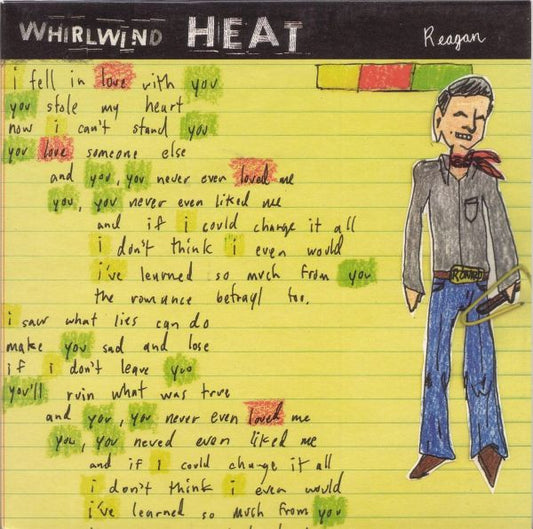 WHIRLWIND HEAT
Reagan
i fell in love with you
you stole my heart
now i can't stand you
you love someone else
and you, you never even loved me
you, you never even liked me
and if i could change it all
i don't think i even would
i've learned so much from you
the romance betrayl too.
i saw what lies can do
make you sad and lose
if i don't leave you
you'll ruin what was true
and you, you never even loved me
you, you neved even liked me
and if i could change it all
i don't think i even would
i've learned so much from you